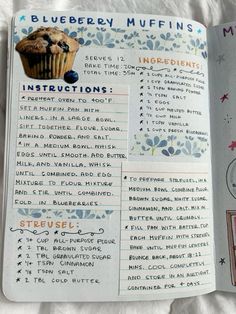 BLUEBERRY MUFFINS
SERVES 12
BAKE TIME: 20M
TOTAL TIME: 35M
INSTRUCTIONS:
* PREHEAT OVEN TO 400°F.
SET A MUFFIN PAN WITH
LINERS. IN A LARGE BOWL,
SIFT TOGETHER FLOUR, SUGAR,
BAKING POWDER, AND SALT.
* IN A MEDIUM BOWL, WHISK
EGGS UNTIL SMOOTH. ADD BUTTER,
MILK, AND VANILLA, WHISK
UNTIL COMBINED. ADD EGG
MIXTURE TO FLOUR MIXTURE
AND STIR UNTIL COMBINED.
FOLD IN BLUEBERRIES.
INGREDIENTS:
* 2 CUPS ALL-PURPOSE FLOUR
TSP SALT
* 2 EGGS
MILK
* 1 TSP VANILLA
* 2 CUPS FRESH BLUEBERRIES
STREUSEL:
CUP ALL-PURPOSE FLOUR
* 2 TBL BROWN SUGAR
* 2 TBL GRANULATED SUGAR
TSP CINNAMON
TSP SALT
* 2 TBL COLD BUTTER
* TO PREPARE STREUSEL, IN A
MEDIUM BOWL COMBINE FLOUR,
BROWN SUGAR, WHITE SUGAR,
CINNAMON, AND SALT. MIX IN
BUTTER UNTIL CRUMBLY.
* FILL PAN WITH BATTER, TOP
EACH MUFFIN WITH STREUSEL.
BAKE UNTIL MUFFIN CENTERS
BOUNCE BACK, ABOUT 18-22
MINS. COOL COMPLETELY
AND STORE IN AN AIRTIGHT
CONTAINER FOR 4 DAYS.
M